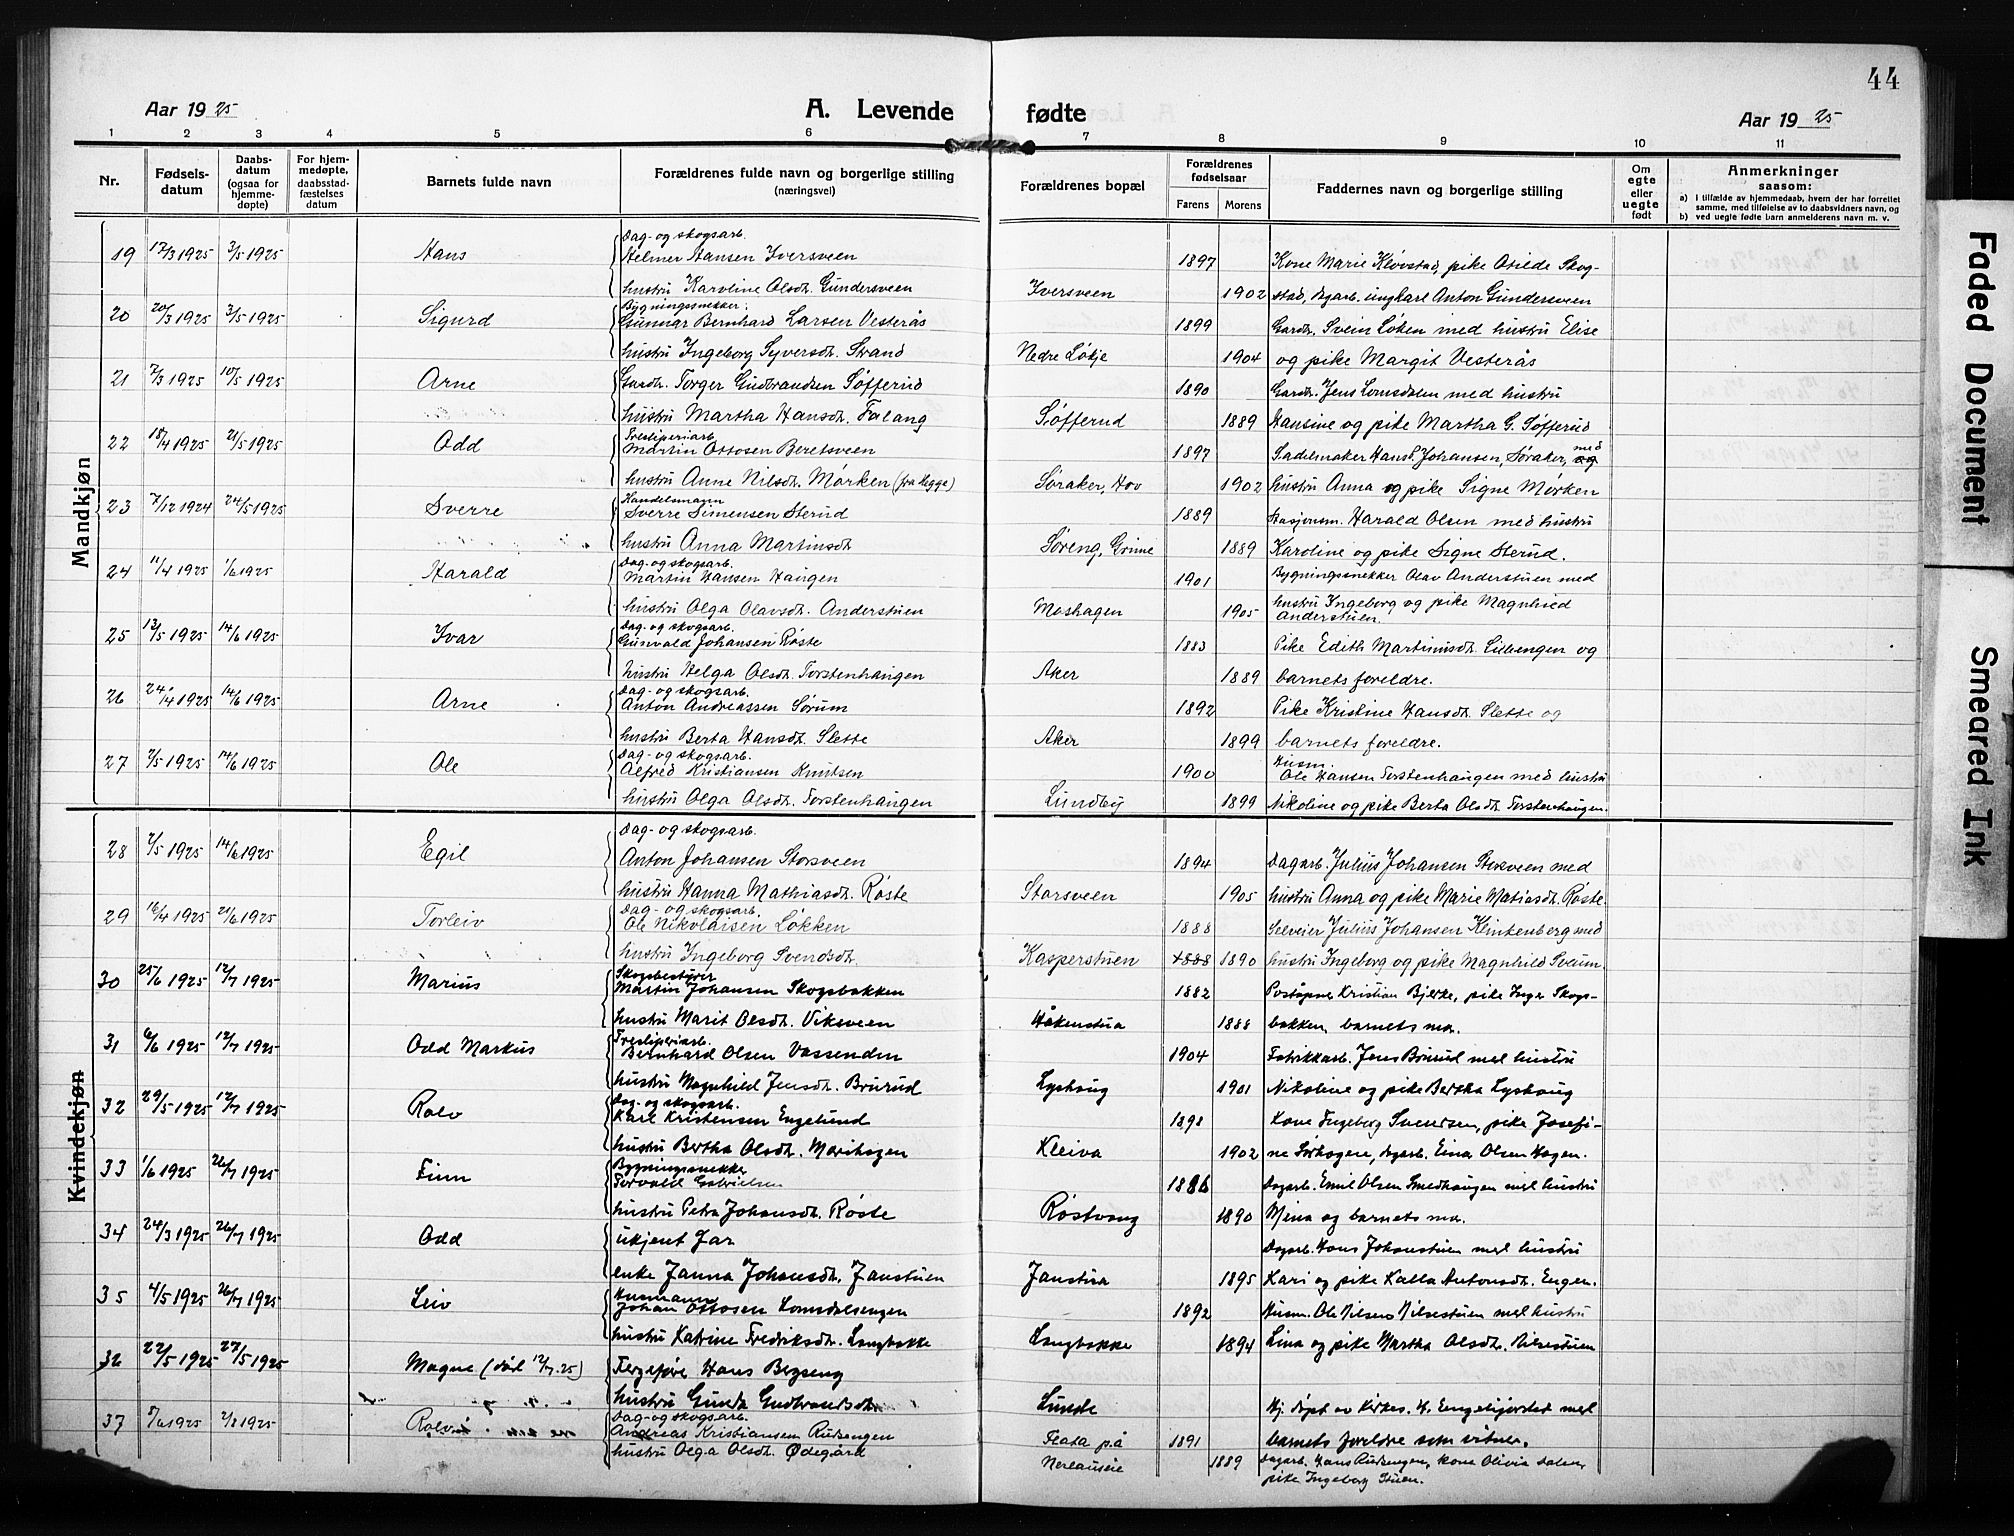 44
Aar 1925
A. Levende fødte
Aar 1925
1 2 3 4 5 6 7 8 9 10 11
Nr.
Fødsels-
datum
Daabs-
datum
(ogsaa for
hjemme-
døpte)
For hjem-
medøpte,
daabsstad-
fæstelses
datum
Barnets fulde navn
Forældrenes fulde navn og borgerlige stilling
(næringsvei)
Forældrenes bopæl
Forældrenes
fødselsaar
Farens Morens
Faddernes navn og borgerlige stilling
Om
egte
eller
uegte
født
Anmerkninger
saasom:
a) I tilfælde av hjemmedaab, hvem der har forrettet
samme, med tilføielse av to daabsvidners navn, og
b) ved uegte fødte barn anmelderens navn m. v.
Mandkjøn
Dag- og skogsarb.
19 17/3 1925 3/5 1925 Hans Helmer Hansen Iversveen 1897 Kone Marie Kløvstad, pike Otilde Skog-
hustru Karoline Olsdt. Gundersveen Iversveen 1902 stad, dagarb. ungkarl Anton Gundersveen
Bygningssnekker
20 20/3 1925 3/5 1925 Sigurd Gunnar Bernhard Larsen Vesterås 1899 Gardbr. Svein Løken med hustru Elise
hustru Ingeborg Syversdt. Strand Nedre Løkje 1904 og pike Margit Vesterås
21 7/3 1925 10/5 1925 Arne Gardbr. Torger Gudbrandsen Søfferud 1890 Gardbr. Jens Lomsdalen med hustru
hustru Martha Hansdt. Falang Søfferud 1889 Hansine og pike Martha G. Søfferud
Tresliperiarb.
22 18/4 1925 21/5 1925 Odd Martin Ottosen Beretsveen 1897 Sadelmaker Hans Johansen, Søraker, med
hustru Anne Nilsdt. Mørken (fra Hegge) Søraker, Hov 1902 hustru Anna og pike Signe Mørken
Handelsmann
23 7/12 1924 24/5 1925 Sverre Sverre Simensen Sterud 1889 Stasjonsm. Harald Olsen med hustru
hustru Anna Martinsdt. Søreng, Grime 1889 Karoline og pike Signe Sterud.
Dag- og skogsarb.
24 11/4 1925 1/6 1925 Harald Martin Hansen Haugen 1901 Bygningssnekker Olav Anderstuen med
hustru Olga Olavsdt. Anderstuen Moshagen 1905 hustru Ingeborg og pike Magnhild
Anderstuen.
Dag- og skogsarb.
25 13/5 1925 14/6 1925 Ivar Gunvald Johansen Røste 1883 Pike Edith Martinusdt. Lillbengen og
hustru Helga Olsdt. Torstenhaugen Aker 1889 barnets foreldre.
Dag- og skogsarb.
26 24/4 1925 14/6 1925 Arne Anton Andreassen Sørum 1892 Pike Kristine Hansdt. Slette og
hustru Berta Hansdt. Slette Aker 1899 barnets foreldre.
Dag- og skogsarb. Husm.
27 7/5 1925 14/6 1925 Ole Alfred Kristiansen Knutsen 1900 Ole Hansen Torstenhaugen med hustru
hustru Olga Olsdt. Torstenhaugen Lundby 1899 Nikoline og pike Berta Olsdt. Torstenhaugen.
Kvindekjøn
Dag- og skogsarb.
28 7/5 1925 14/6 1925 Egil Anton Johansen Storsveen 1894 Dagarb. Julius Johansen Storsveen med
hustru Hanna Mathiasdt. Røste Storsveen 1905 hustru Anna og pike Marie Matiasdt. Røste
Dag- og skogsarb.
29 16/4 1925 21/6 1925 Torleiv Ole Nikolaisen Løkken 1888 Selveier Julius Johansen Klinkenberg med
hustru Ingeborg Svendsdt. Kasperstuen 1888 1890 hustru Ingeborg og pike Magnhild Sveum.
Skogbestyrer
30 25/6 1925 12/7 1925 Marius Martin Johansen Skogsbakken 1882 Poståpner Kristian Bjerke, pike Inger Skogs-
hustru Marit Olsdt. Viksveen Håkenstua 1888 bakken, barnets mor.
Tresliperiarb.
31 6/6 1925 12/7 1925 Odd Markus Bernhard Olsen Vassenden 1904 Fabrikkarb. Jens Brurud med hustru
hustru Magnhild Jensdt. Brurud Lyshaug 1901 Nikoline og pike Bertha Lyshaug
Dag- og skogsarb.
32 29/5 1925 12/7 1925 Rolv Karl Kristensen Engelund 1898 Kone Ingeborg Svendsen, pike Josefi-
hustru Bertha Olsdt. Marihagen Kleiva 1902 ne Sørhagen, dagarb. Einar Olsen Hagen.
Bygningssnekker
33 1/6 1925 26/7 1925 Finn Torvald Gabrielsen 1886 Dagarb. Emil Olsen Smedhaugen med hustru
hustru Petra Johansdt. Røste Røstvang 1890 Mina og barnets mor.
34 24/3 1925 26/7 1925 Odd ukjent far Dagarb. Hans Johanstuen med hustru
enke Janna Johansdt. Janstuen Janstua 1895 Kari og pike Kalla Antonsdt. Engen.
Husmann
35 4/5 1925 26/7 1925 Leiv Johan Ottosen Lomsdalsengen 1892 Husm. Ole Nilsen Nilsestuen med hustru
hustru Katrine Fredriksdt. Langbakke Langbakke 1894 Lina og pike Martha Olsdt. Nilsestuen
36 22/5 1925 27/5 1925 Magne (død 12/7.25) Hans Bergseng
hustru Gunda Gudbrandsdt. Lunde Hj. døpt av Kirkes. H. Engebjørsted med
Dag- og skogsarb.
37 5/6 1925 2/8 1925 Andreas Kristiansen Rudsengen Flata på 1891 barnets foreldre som vitner.
hustru Olga Olsdt. Ødegård 1889 Dagarb. Hans Rudsengen, kone Olivia Dalen,
pike Ingeborg Stuen.
Faded Document
Smeared Ink